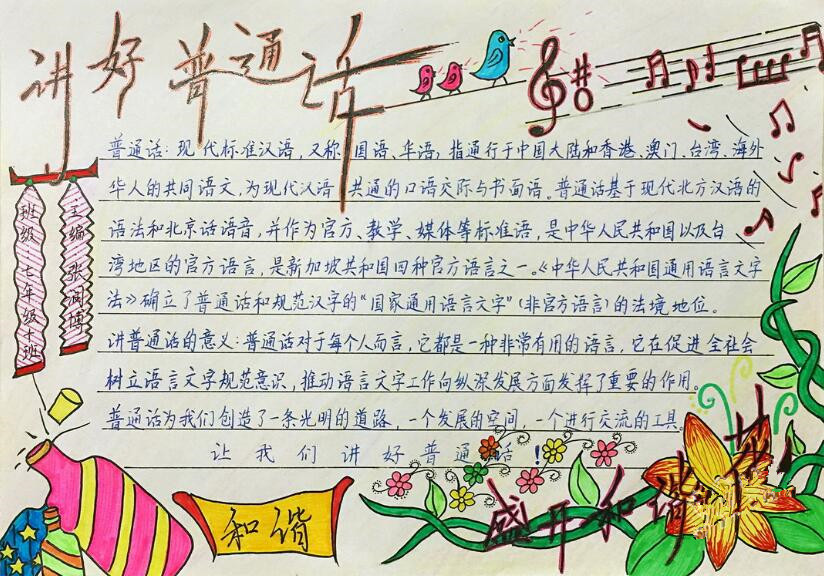 讲好普通话
普通话：现代标准汉语，又称国语、华语，指通行于中国大陆和香港、澳门、台湾、海外
华人的共同语文，为现代汉语共通的口语交际与书面语。普通话基于现代北方汉语的
语法和北京话语音，并作为官方、教学、媒体等标准语，是中华人民共和国以及台
湾地区的官方语言，是新加坡共和国四种官方语言之一。《中华人民共和国通用语言文字
法》确立了普通话和规范汉字的“国家通用语言文字”（非官方语言）的法境地位。
讲普通话的意义：普通话对于每个人而言，它都是一种非常有用的语言，它在促进全社会
树立语言文字规范意识，推动语言文字工作向纵深发展方面发挥了重要的作用。
普通话为我们创造了一条光明的道路，一个发展的空间，一个进行交流的工具。
让我们讲好普通话！
班级 七年级十班
主编 张阅博
和谐
盛开和谐花